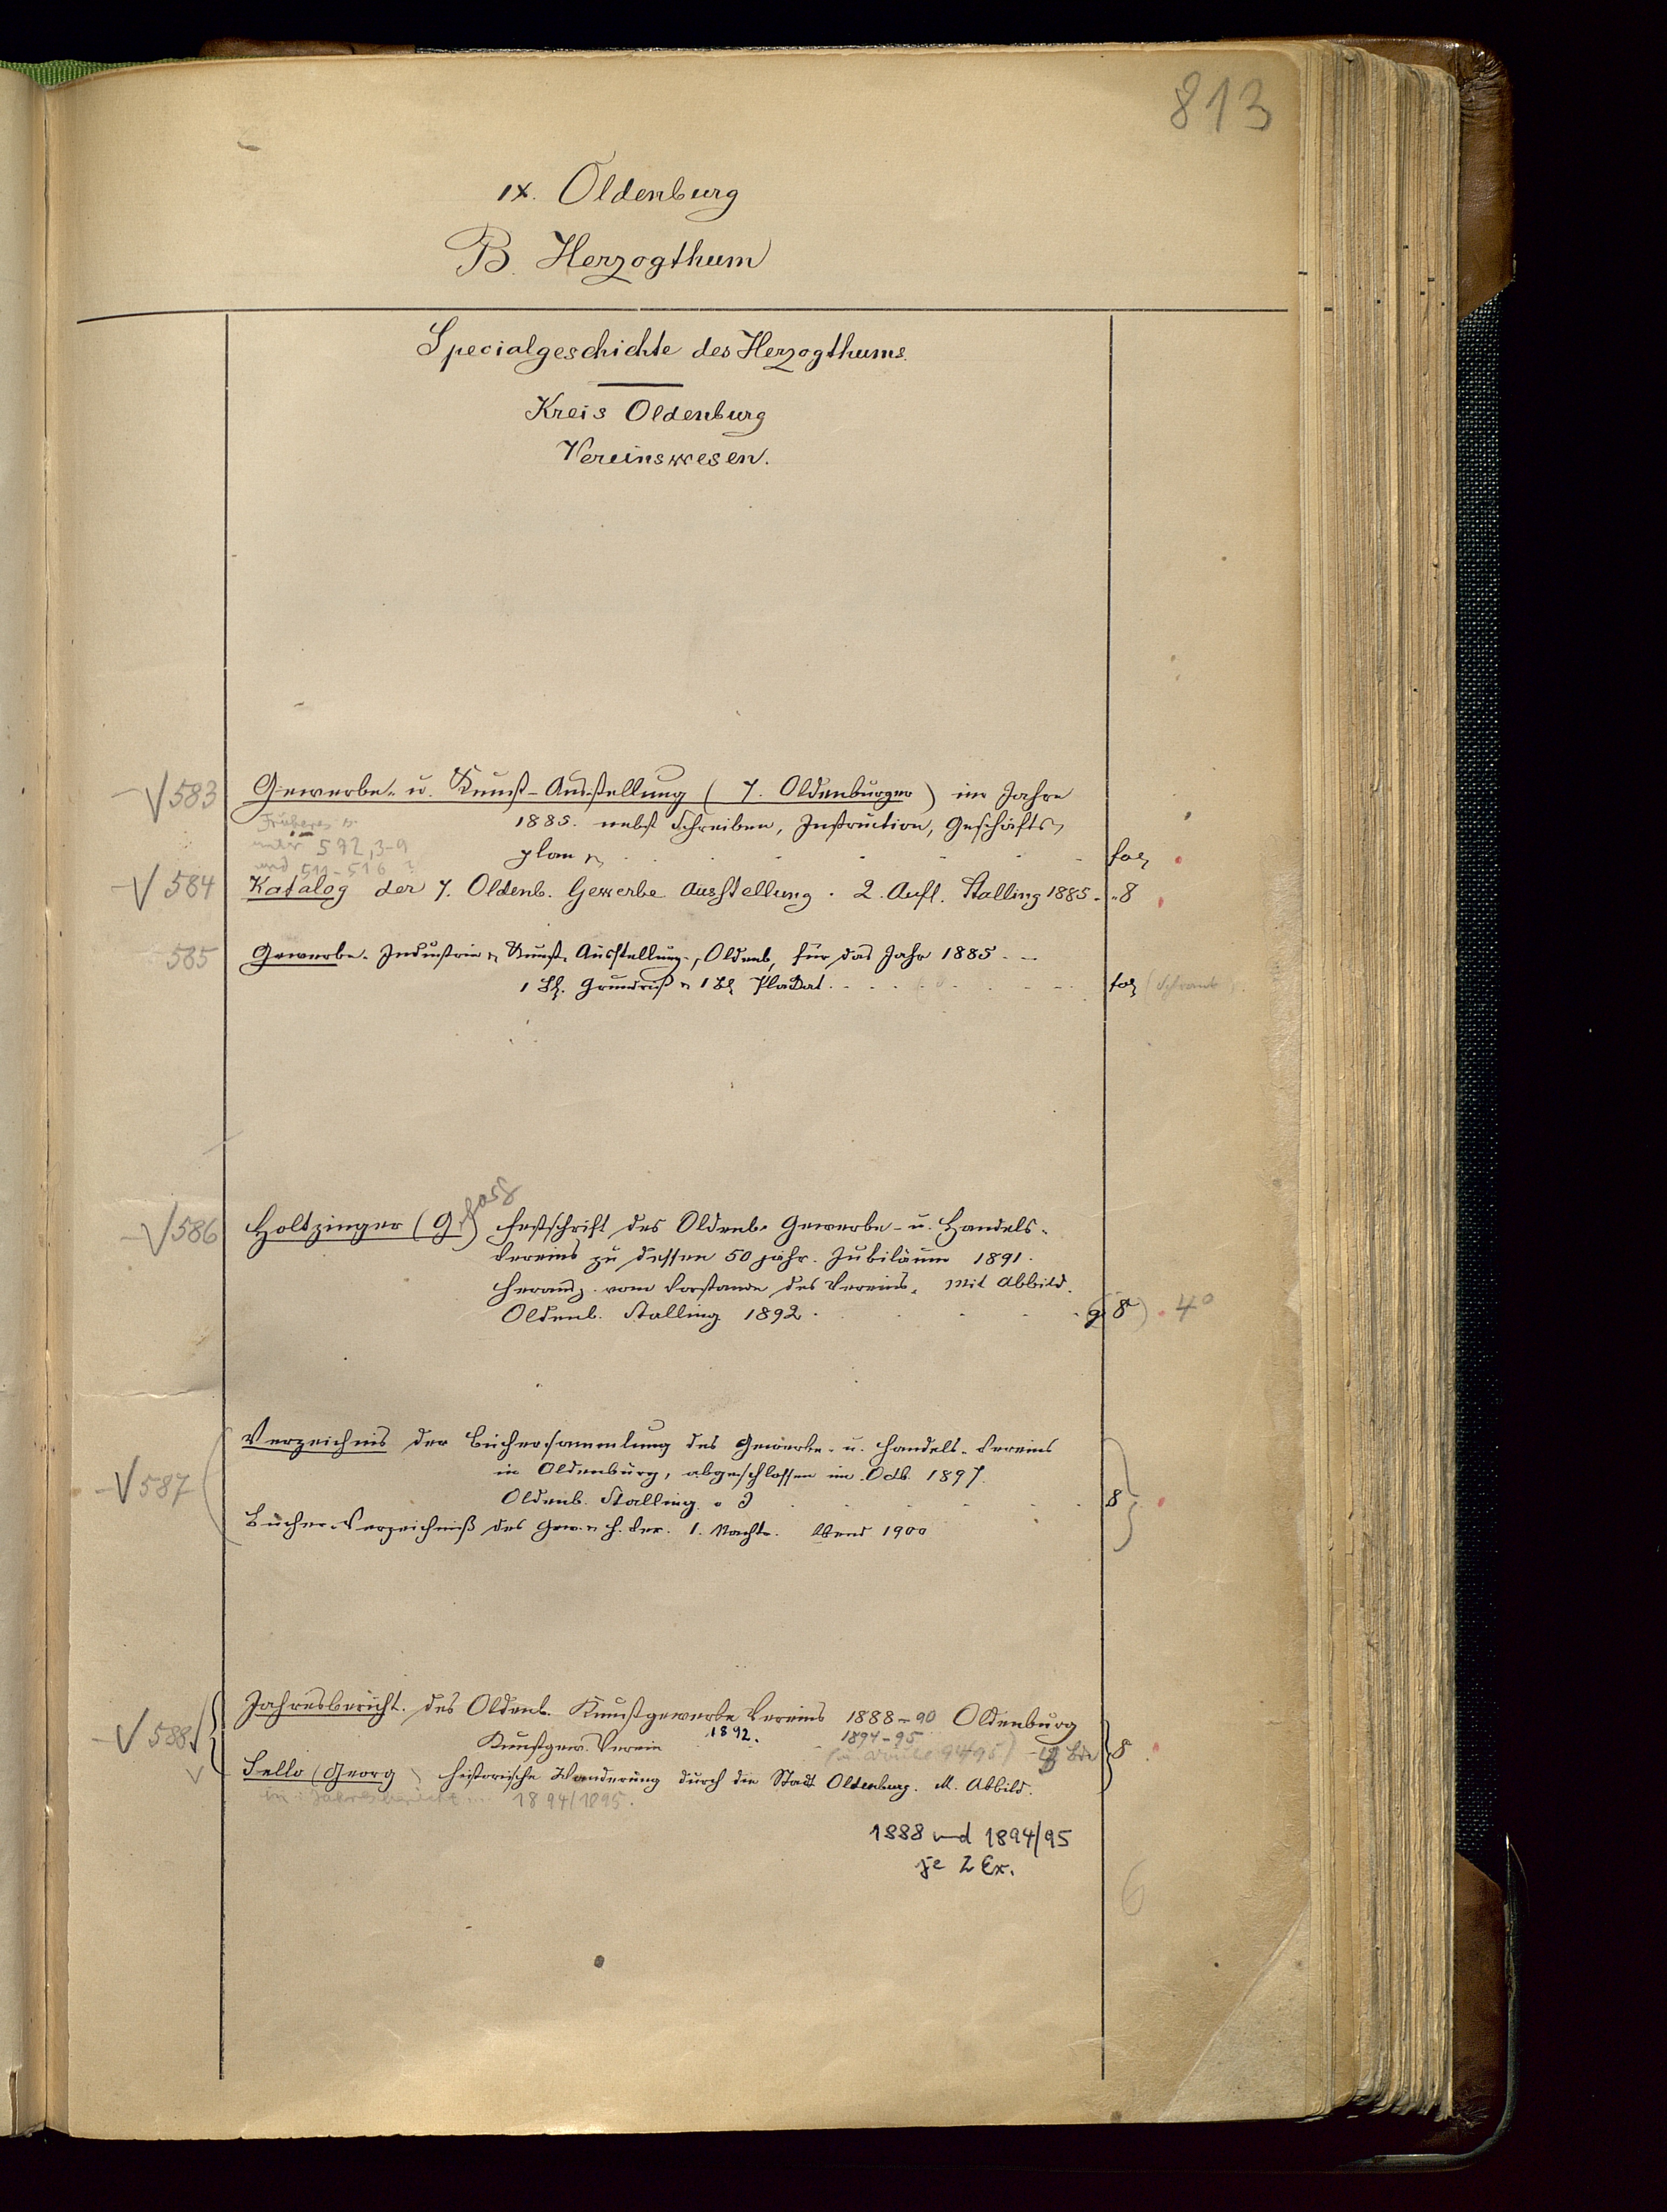 813
IX. Oldenburg
B. Herzogthum
Specialgeschichte des Herzogthums.
Kreis Oldenburg
Vereinswesen.
√ 583 Gewerbe- u. Kunst-Ausstellung (7. Oldenburger) im Jahre
1885. nebst Schreiben, Instruction, Geschäfts-
plan fol
Früheres s.
unter 592,3-9
und 511-516 ?
√ 584 Katalog der 7. Oldenb. Gewerbe Ausstellung. 2. Aufl. Stalling 1885. 8
585 Gewerbe- Industrie u Kunst-Ausstellung, Oldenb, für das Jahr 1885.
1 Bl. Grundriß u 1 Bl Plakat. fol (Schrank).
√ 586 Holtzinger (G) Festschrift des Oldenb. Gewerbe- u. Handels-
Vereins zu dessen 50 jähr. Jubiläum 1891.
Herausg. vom Vorstande des Vereins. Mit Abbild.
Oldenb. Stalling 1892. (gr 8°) 4°
√ 587 Verzeichnis der Büchersammlung des Gewerbe- u. Handels-Vereins
in Oldenburg, abgeschlossen im Octb. 1897.
Oldenb. Stalling. 8
Bücher-Verzeichniß des Gew. u H. Ver. 1. Nachtr. 1900
√ 588 Jahresbericht. des Oldenb. Kunstgewerbe Vereins 1888-90 Oldenburg
Kunstgew. Verein 1892. 1894-95 8
Sello (Georg) historische Wanderung durch die Stadt Oldenburg. M. Abbild.
in: Jahresbericht 1894/1895.
1888 und 1894/95
je 2 Ex.
6